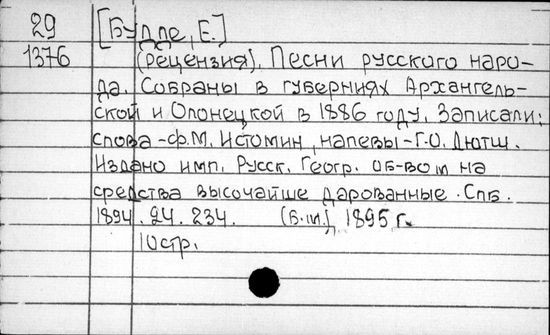 29 [Будде, Е.]
1376 (рецензия). Песни русского наро-
да. Собраны в губерниях Архангель-
ской и Олонецкой в 1886 году. Записали:
слова - Ф.М. Истомин, напевы - Г.О. Дютш.
Издано имп. Русск. Геогр. об-вом на
средства высочайше дарованные. Спб.
1894. 24. 234. (б.м.) 1895 г.
10стр.